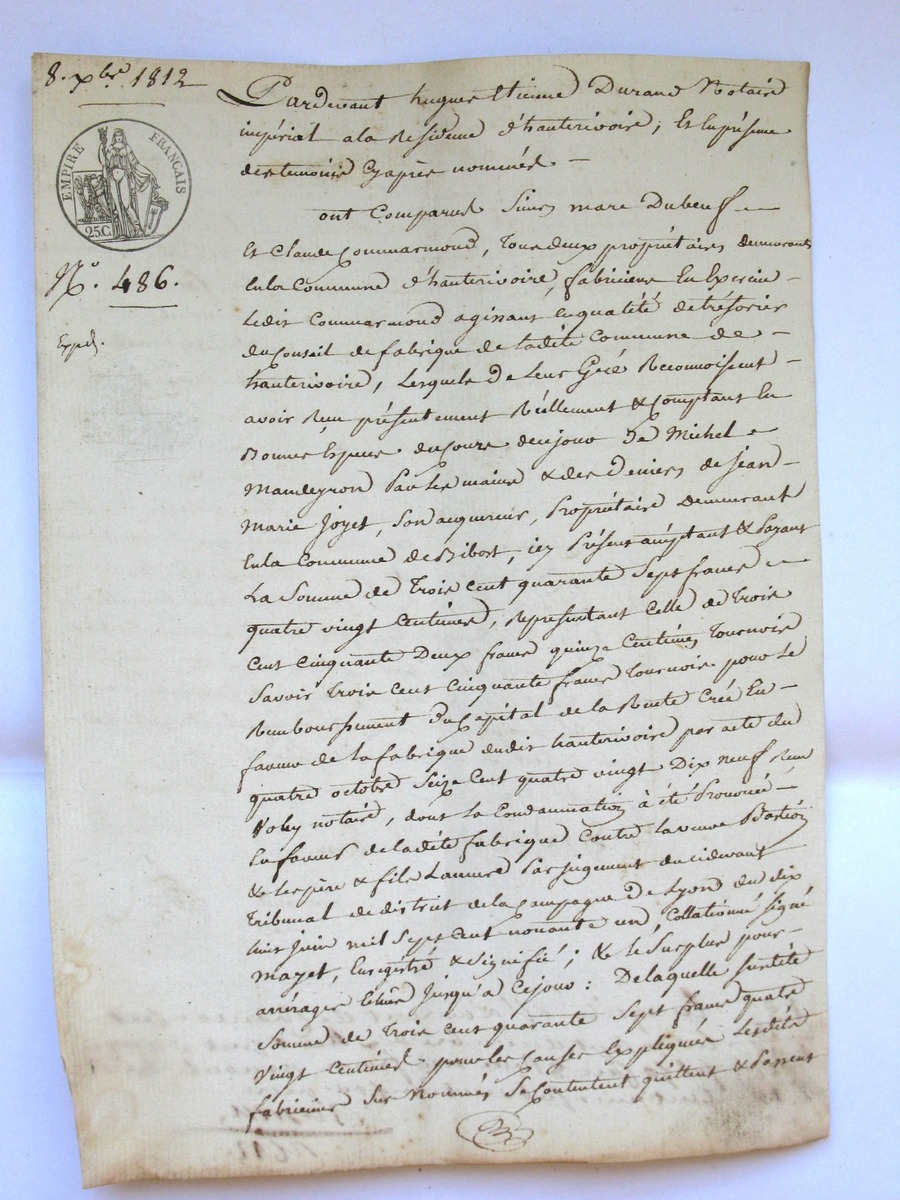 8. xbre 1812
EMPIRE FRANÇAIS
25C.
N.° 486.
Expé.
Pardevant hugues Etienne Durand Notaire
impérial a la Residence d'hauterivoire, Et En présence
des temoins cy après nommés —
ont Comparus Sieurs marc Dubeuf —
Et Claude Commarmond, Tous deux propriétaires demeurants
En la Commune d'hauterivoire, fabriciens En Exercice —
Ledit Commarmond agissant En qualité de trésorier
du Conseil de fabrique de ladite Commune de —
hauterivoire, Lesquels De Leur Gré Reconnoissent —
avoir Reçu présentement Réellement & Comptant En
Bonnes Espèces du Cours de ce jour De Michel
Mandeyron Par Les mains & des Deniers de Jean —
Marie Joyet, Son acquereur, Propriétaire Demeurant
En la Commune de Bibost, icy Présent acceptant & Payant
La Somme de Trois Cent quarante Sept francs —
quatre vingt Centimes, Représentant Celle de Trois
Cent Cinquante Deux francs quinze Centimes Tournois
Savoir Trois Cent Cinquante francs Tournois pour Le
Remboursement Du Capital de la Rente Créé En —
faveur de la fabrique dudit hauterivoire par acte du
quatre octobre Seize Cent quatre vingt Dix neuf Reçu
notaire, dont la Condamnation à été Prononcé —
En faveur de ladite fabrique Contre la veuve
& Les père & fils Par jugement du cidevant
Tribunal de district de la Campagne De Lyon du dix
huit Juin mil Sept Cent nonante un, Collationné Signé
mayet, Enregistré & Signifié; & le Surplus pour —
arrérages Echus Jusqu'a Ce jour: De laquelle Susdite
Somme de Trois Cent quarante Sept francs quatre
Vingt Centimes pour les Causes Expliquées Lesdits
fabriciens Sus Nommés Se Contentent quittent & Passent